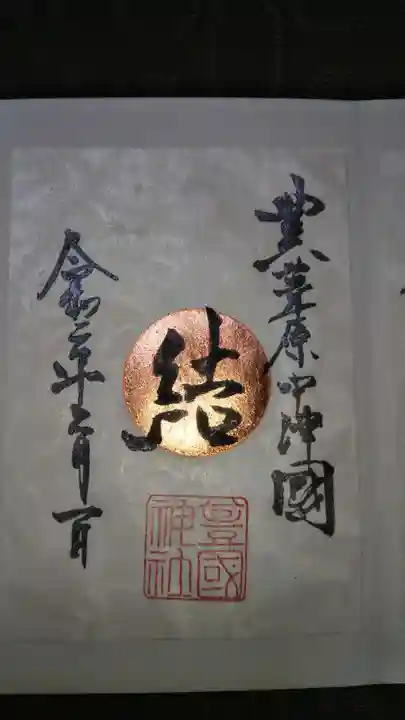 豊葦原中津國
結
豊國
神社
令和二年六月一日